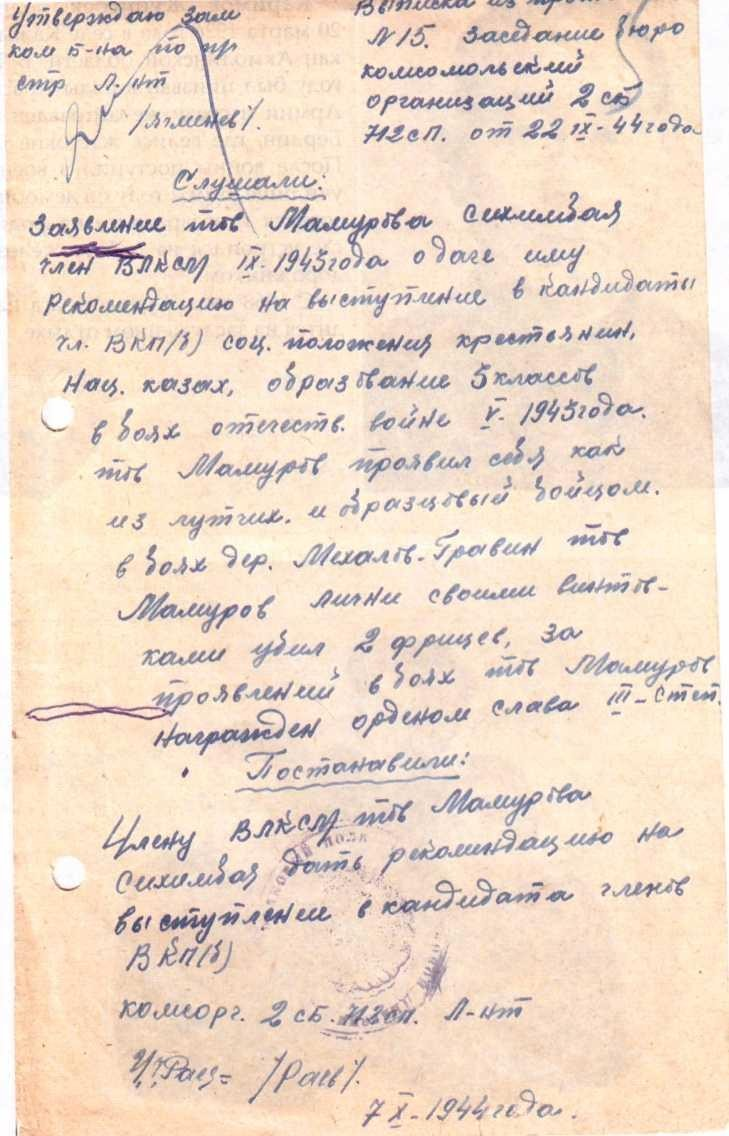 Утверждаю Зам
ком б-на по пр
стр Л-нт
/Ягменев/.
Выписка из прот
N 15. Заседание бюро
комсомольский
организаций 2 сб
712 сп. от 22 IX-44 года
Слушали:
Заявление тов Мамурова Сихимбая
член ВЛКСМ IX-1943 года о даче иму
рекомендацию на выступление в кандидаты
чл. ВКП/б) соц. положения крестьянин,
Нац. казах, образование 5 классов
в боях отечеств. войне V-1943 года.
тов Мамуров проявил себя как
из лутчих. и образцовый бойцом.
в боях дер. Мехалов-Гравин тов
Мамуров лични своими винтов-
ками убил 2 фрицев, за
проявлений в боях тов Мамуров
награжден орденом слава III-степ.
Постанавили:
Члену ВЛКСМ тов Мамурова
Сихимбая дать рекомендацию на
выступление в кандидата членов
ВКП/б)
комсорг. 2 сб. 712 сп. Л-нт
/Раев/.
7 X-1944 года.